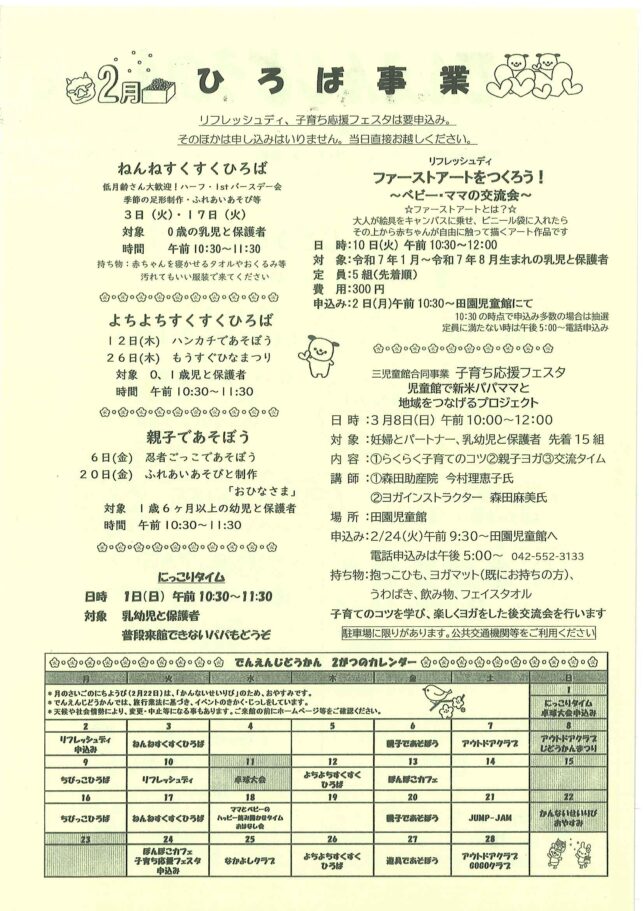 2月 ひろば事業
リフレッシュディ、子育ち応援フェスタは要申込み。
そのほかは申し込みはいりません。当日直接お越しください。
ねんねすくすくひろば
低月齢さん大歓迎！ハーフ・1stバースデー会
季節の足形制作・ふれあいあそび等
3日（火）・17日（火）
対象 0歳の乳児と保護者
時間 午前10:30～11:30
持ち物：赤ちゃんを寝かせるタオルやおくるみ等
汚れてもいい服装で来てください
よちよちすくすくひろば
12日(木) ハンカチであそぼう
26日(木) もうすぐひなまつり
対象 0、1歳児と保護者
時間 午前10:30～11:30
親子であそぼう
6日(金) 忍者ごっこであそぼう
20日(金) ふれあいあそびと制作
「おひなさま」
対象 1歳6ヶ月以上の幼児と保護者
時間 午前10:30～11:30
にっこりタイム
日時 1日(日) 午前10:30～11:30
対象 乳幼児と保護者
普段来館できないパパもどうぞ
リフレッシュディ
ファーストアートをつくろう！
～ベビー・ママの交流会～
☆ファーストアートとは？☆
大人が絵具をキャンバスに乗せ、ビニール袋に入れたら
その上から赤ちゃんが自由に触って描くアート作品です
日 時：10日(火) 午前10:30～12:00
対 象：令和7年1月～令和7年8月生まれの乳児と保護者
定 員：5組(先着順)
費 用：300円
申込み：2日(月)午前10:30～田園児童館にて
10:30の時点で申込み多数の場合は抽選
定員に満たない時は午後5:00～電話申込み
三児童館合同事業 子育ち応援フェスタ
児童館で新米パパママと
地域をつなげるプロジェクト
日 時：3月8日(日) 午前10:00～12:00
対 象：妊婦とパートナー、乳幼児と保護者 先着15組
内 容：①らくらく子育てのコツ②親子ヨガ③交流タイム
講 師：①森田助産院 今村理恵子氏
②ヨガインストラクター 森田麻美氏
場 所：田園児童館
申込み：2/24(火)午前9:30～田園児童館へ
電話申込みは午後5:00～ 042-552-3133
持ち物：抱っこひも、ヨガマット(既にお持ちの方)、
うわばき、飲み物、フェイスタオル
子育てのコツを学び、楽しくヨガをした後交流会を行います
駐車場に限りがあります。公共交通機関等をご利用ください
でんえんじどうかん 2がつのカレンダー
月 火 水 木 金 土 日
＊月のさいごのにちようび(2月22日)は、「かんないせいりび」のため、おやすみです。
＊でんえんじどうかんでは、旅行業法に基づき、イベントのきかく・じっしをしています。
＊天候や社会情勢により、変更・中止等になる事もあります。ご来館の前にホームページ等をご確認ください。
1
にっこりタイム
卓球大会申込み
2 3 4 5 6 7 8
リフレッシュディ
申込み
ねんねすくすくひろば
親子であそぼう
アウトドアクラブ
アウトドアクラブ
じどうかんまつり
9 10 11 12 13 14 15
ちびっこひろば
リフレッシュディ
卓球大会
よちよちすくすく
ひろば
ぽんぽこカフェ
16 17 18 19 20 21 22
ちびっこひろば
ねんねすくすくひろば
ママとベビーの
ハッピー読み聞かせタイム
おはなし会
親子であそぼう
JUMP-JAM
かんないせいりび
おやすみ
23 24 25 26 27 28
ぽんぽこカフェ
子育ち応援フェスタ
申込み
なかよしクラブ
よちよちすくすく
ひろば
遊具であそぼう
アウトドアクラブ
GOGOクラブ